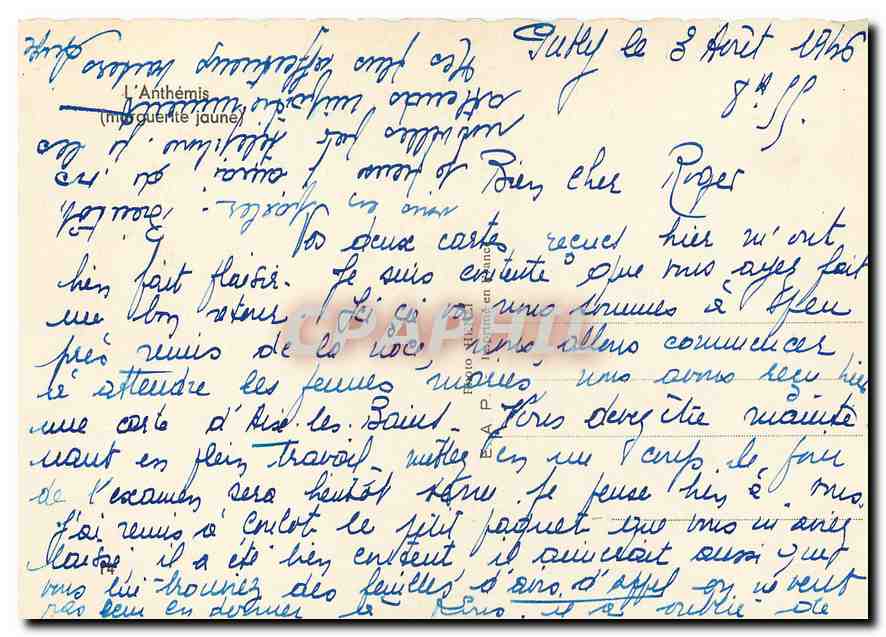 le 3 Août 1946
8H 55.
Bien cher Roger
Vos deux cartes reçues hier m'ont
bien fait plaisir. Je suis contente que vous ayez fait
un bon retour. Ici ça va nous sommes à peu
près remis de la noce, nous allons commencer
à attendre les jeunes mariés nous avons reçu hier
une carte d'Aix-les-Bains. Vous devez être mainte
nant en plein travail. mettez en un coup, le jour
de l'examen sera bientôt venu je pense bien à vous.
J'ai remis à le petit paquet que vous m'aviez
laissé il a été bien content il aimerait aussi que
vous lui trouviez des feuilles d'avis d'appel on ne veut
pas leur en donner à il a oublié de
vous en parler. Bientôt,
je pense j'aurai de vos
nouvelles par téléphone. je les
attends
Mes plus affectueux baisers
L'Anthémis
(marguerite jaune)
E. A. P.
Imprimé en France
Photo
14
CPAPHIL